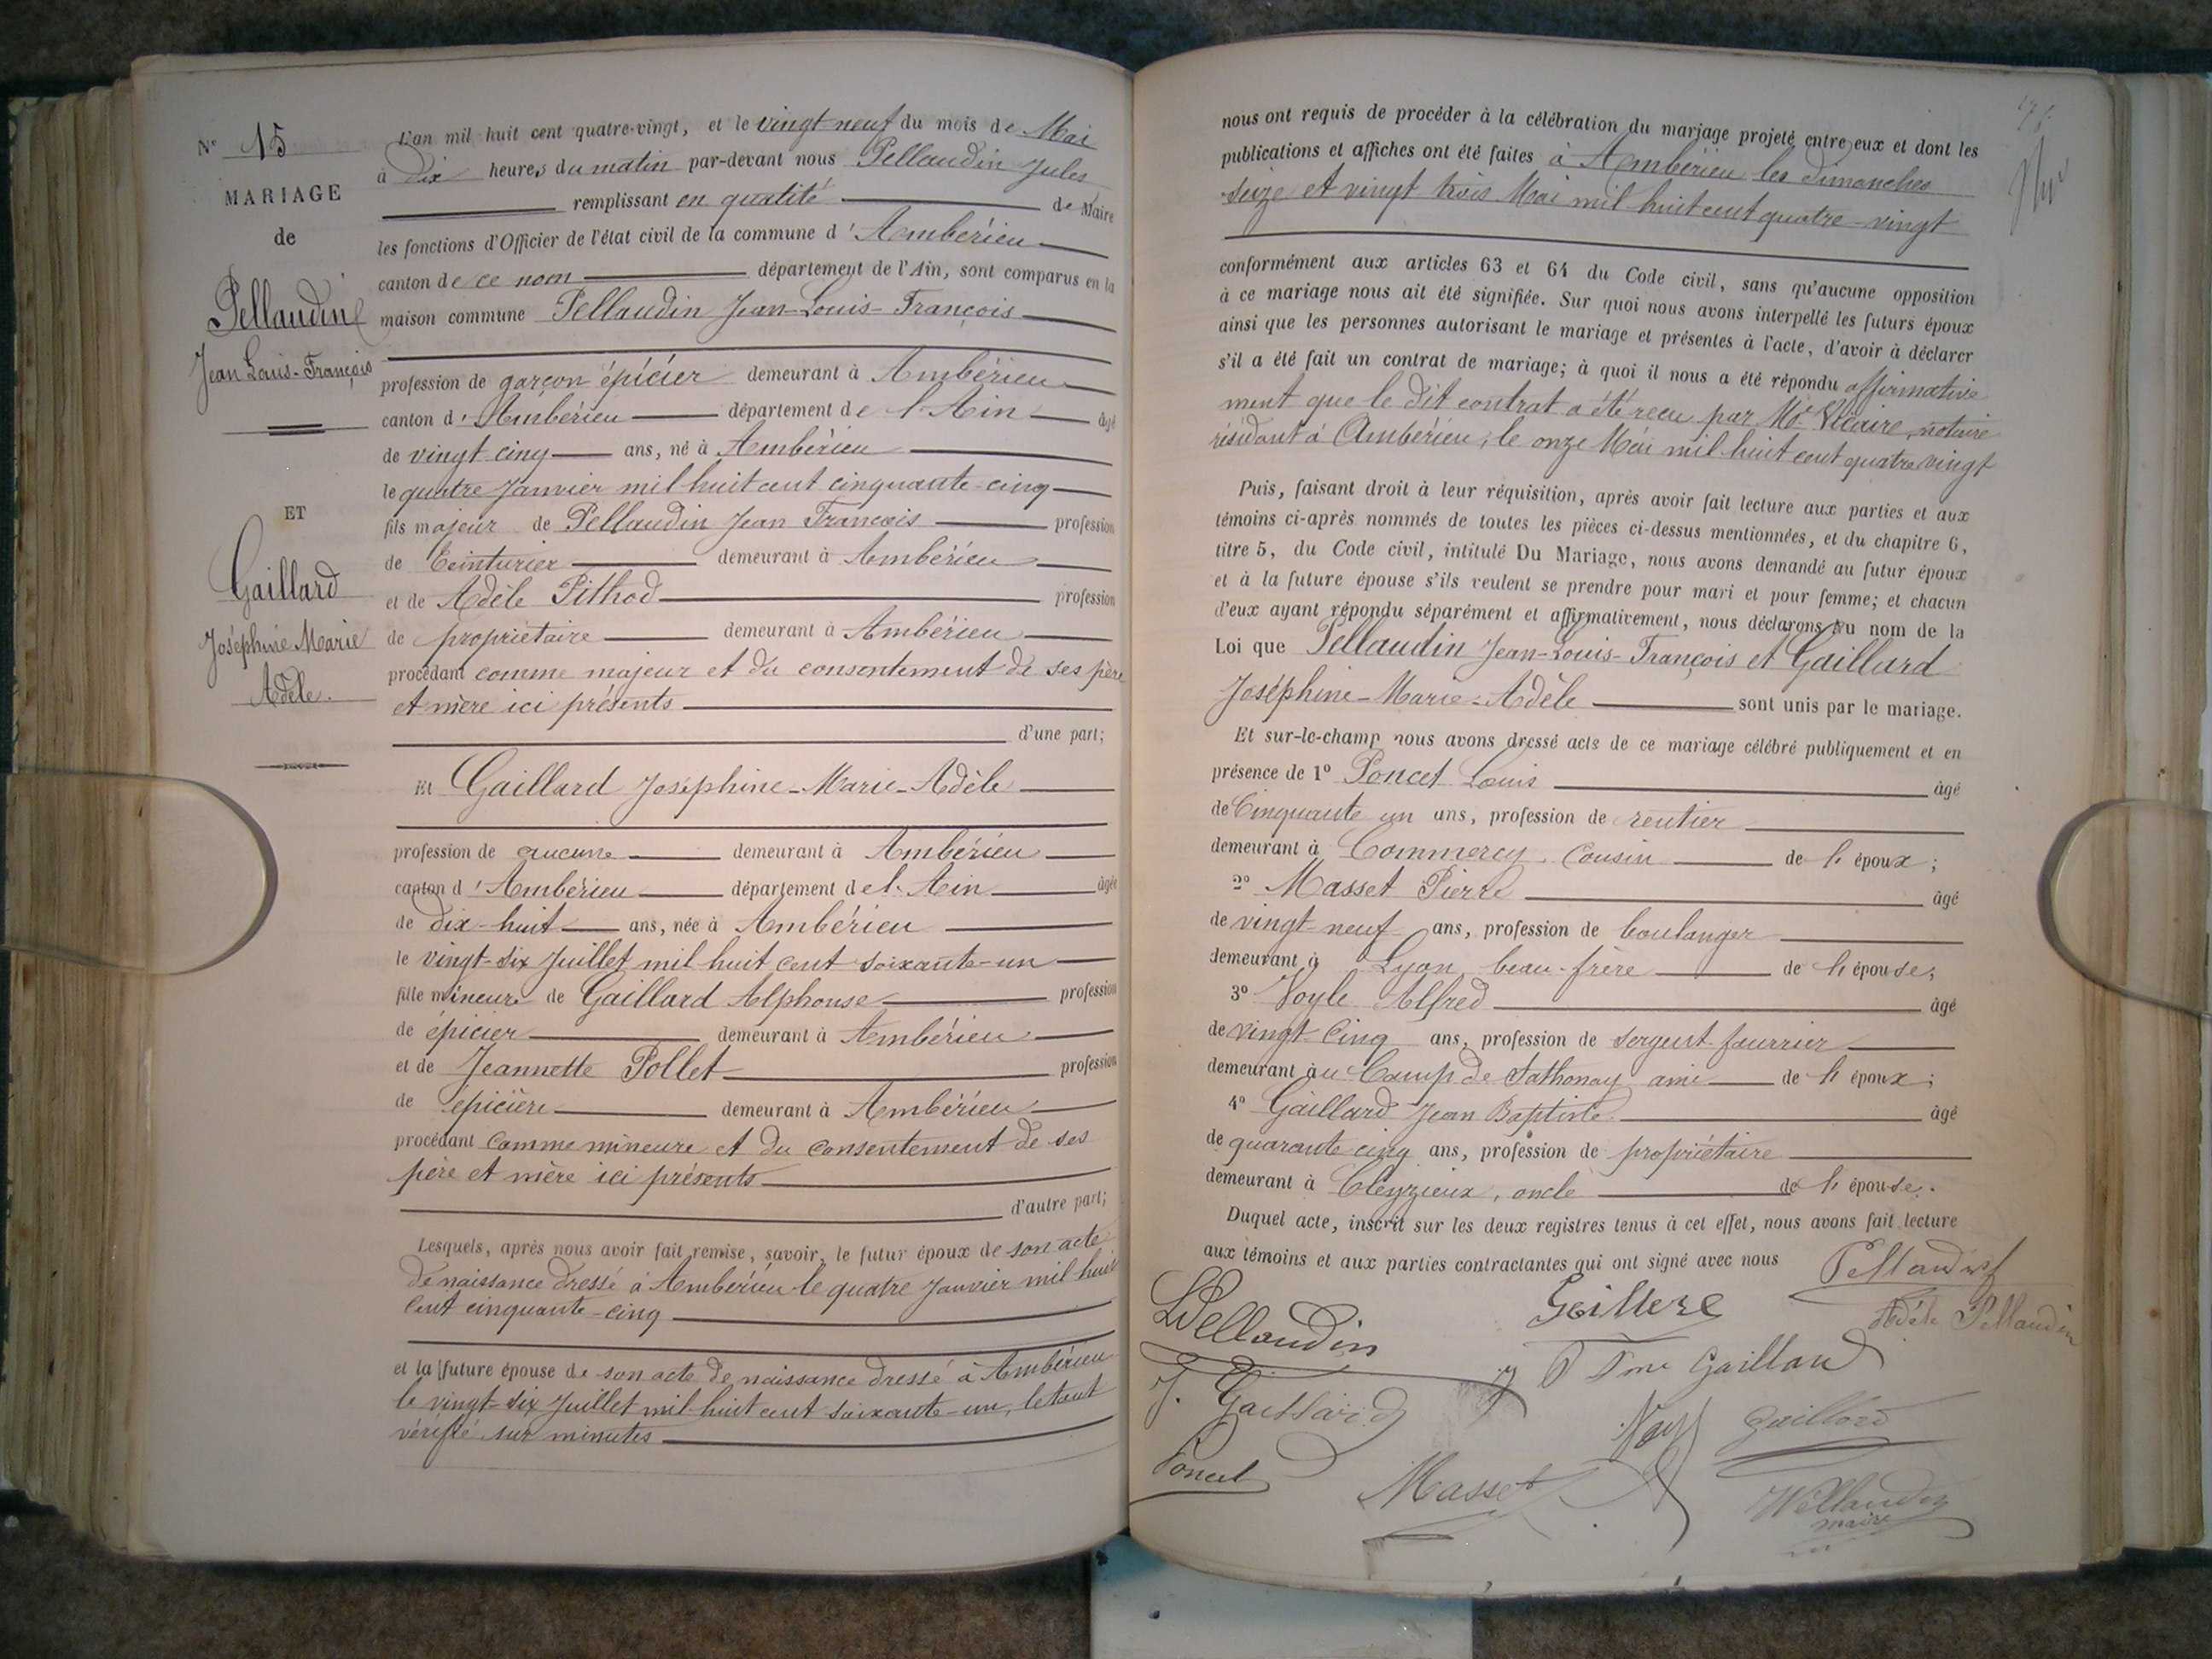 N° 15
MARIAGE
de
Pellaudin
Jean Louis-François
ET
Gaillard
Joséphine Marie
Adèle.
L'an mil huit cent quatre-vingt, et le vingt neuf du mois de Mai
à dix heures du matin par-devant nous Pellaudin Jules
remplissant en qualité de Maire
les fonctions d'Officier de l'état civil de la commune d'Ambérieu
canton de ce nom département de l'Ain, sont comparus en la
maison commune Pellaudin Jean-Louis-François
profession de garçon épicier demeurant à Ambérieu
canton d'Ambérieu département de l'Ain âgé
de vingt cinq ans, né à Ambérieu
le quatre Janvier mil huit cent cinquante-cinq
fils majeur de Pellaudin Jean François profession
de teinturier demeurant à Ambérieu
et de Adèle Pithod profession
de propriétaire demeurant à Ambérieu
procédant comme majeur et du consentement de ses père
et mère ici présents
d'une part;
Et Gaillard Joséphine-Marie-Adèle
profession de aucune demeurant à Ambérieu
canton d'Ambérieu département de l'Ain âgée
de dix-huit ans, née à Ambérieu
le vingt-six Juillet mil huit cent soixante-un
fille mineure de Gaillard Alphonse profession
de épicier demeurant à Ambérieu
et de Jeannette Pollet profession
de épicière demeurant à Ambérieu
procédant comme mineure et du consentement de ses
père et mère ici présents
d'autre part;
Lesquels, après nous avoir fait remise, savoir, le futur époux de son acte
de naissance dressé à Ambérieu le quatre Janvier mil huit
cent cinquante-cinq
et la future épouse de son acte de naissance dressé à Ambérieu
le vingt-six Juillet mil huit cent soixante-un, le tout
vérifié sur minutes
nous ont requis de procéder à la célébration du mariage projeté entre eux et dont les
publications et affiches ont été faites à Ambérieu les dimanches
seize et vingt trois Mai mil huit cent quatre-vingt
conformément aux articles 63 et 64 du Code civil, sans qu'aucune opposition
à ce mariage nous ait été signifiée. Sur quoi nous avons interpellé les futurs époux
ainsi que les personnes autorisant le mariage et présentes à l'acte, d'avoir à déclarer
s'il a été fait un contrat de mariage; à quoi il nous a été répondu affirmative
ment que le dit contrat a été reçu par Me Vicaire, notaire
résidant à Ambérieu, le onze Mai mil huit cent quatre vingt
Puis, faisant droit à leur réquisition, après avoir fait lecture aux parties et aux
témoins ci-après nommés de toutes les pièces ci-dessus mentionnées, et du chapitre 6,
titre 5, du Code civil, intitulé Du Mariage, nous avons demandé au futur époux
et à la future épouse s'ils veulent se prendre pour mari et pour femme; et chacun
d'eux ayant répondu séparément et affirmativement, nous déclarons au nom de la
Loi que Pellaudin Jean-Louis-François et Gaillard
Joséphine-Marie-Adèle sont unis par le mariage.
Et sur-le-champ nous avons dressé acte de ce mariage célébré publiquement et en
présence de 1° Poncet Louis âgé
de Cinquante un ans, profession de rentier
demeurant à Commercy, Cousin de l'époux;
2° Masset Pierre âgé
de vingt-neuf ans, profession de boulanger
demeurant à Lyon, beau-frère de l'épouse;
3° Voyle Alfred âgé
de vingt-cinq ans, profession de sergent-fourrier
demeurant au Camp de Sathonay ami de l'époux;
4° Gaillard Jean Baptiste âgé
de quarante cinq ans, profession de propriétaire
demeurant à Cleyzieux, oncle de l'épouse.
Duquel acte, inscrit sur les deux registres tenus à cet effet, nous avons fait lecture
aux témoins et aux parties contractantes qui ont signé avec nous Pellaudin
LPellaudin
Adèle Pellaudin
J. Gaillard
Fme Gaillard
Gaillard
Poncet
Masset
Pellaudin
maire